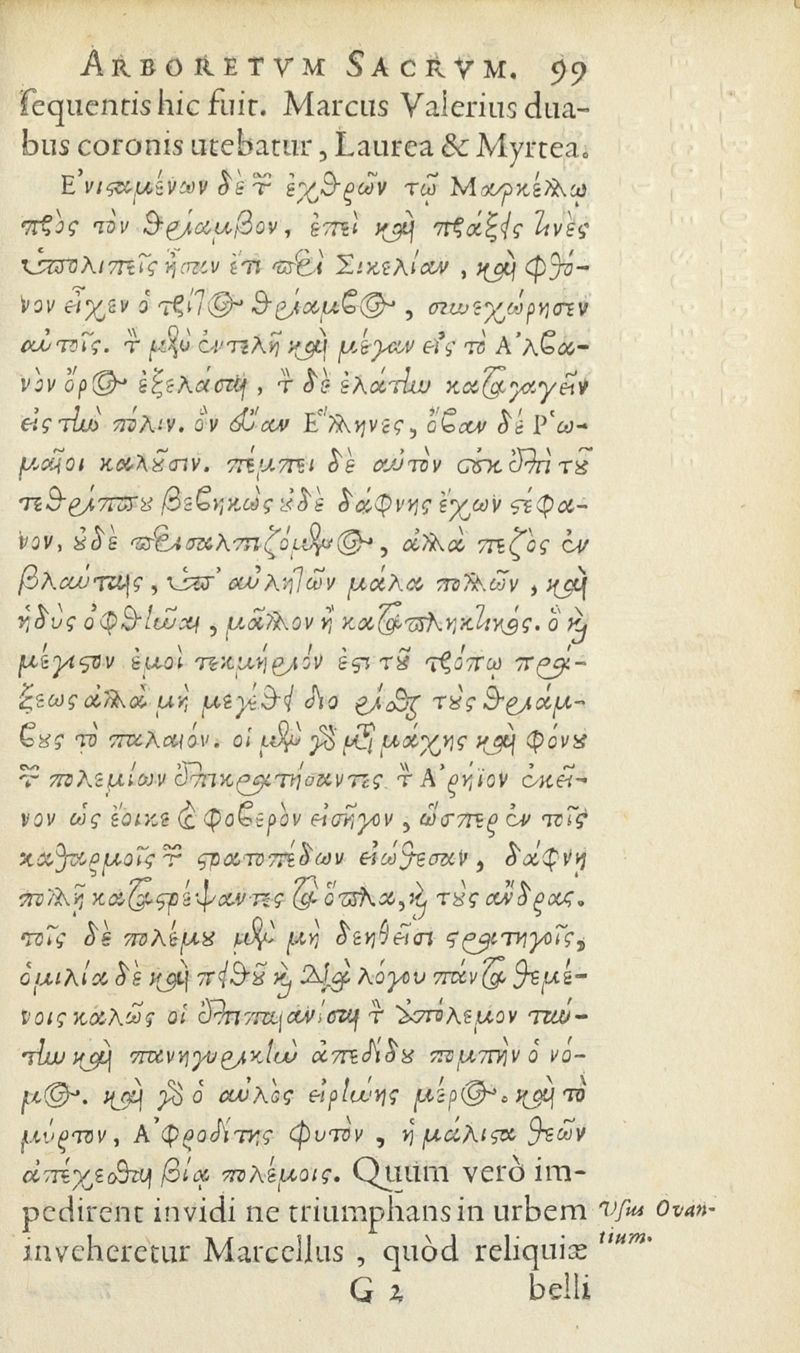 ARBORETVM SACRVM. 99
sequentis hic fuit. Marcus Valerius dua-
bus coronis utebatur, Laurea & Myrtea.
Ἐνισταμένων δὲ τῶν ἐχθρῶν τῷ Μαρκέλλῳ
πρὸς τὸν θρίαμβον, ἐπεὶ καὶ πράξεις τινὲς
ὑπολιπεῖς ἦσαν ἔτι περὶ Σικελίαν, καὶ φθό-
νον εἶχεν ὁ τρίτος θρίαμβος, συνεχώρησεν
αὐτοῖς. τὸν μὲν ἐντελῆ καὶ μέγαν εἰς τὸ Ἀλβα-
νὸν ὄρος ἐξελάσαι, τὸν δὲ ἐλάττω καταγαγεῖν
εἰς τὴν πόλιν. ὃν εὔαν Ἕλληνες, ὄβαν δὲ Ῥω-
μαῖοι καλοῦσιν. πέμπει δὲ αὐτὸν οὐκ ἐπὶ τοῦ
τεθρίππου βεβηκὼς οὐδὲ δάφνης ἔχων στέφα-
νον, οὐδὲ περισαλπιζόμενος, ἀλλὰ πεζὸς ἐν
βλαύταις, ὑπ' αὐλητῶν μάλα πολλῶν, καὶ
ἡδὺς ὀφθῆναι, μᾶλλον ἢ καταπληκτικός. ὃ καὶ
μέγιστον ἐμοὶ τεκμήριόν ἐστι τοῦ τρόπῳ πρά-
ξεως ἀλλὰ μὴ μεγέθει διορίσθαι τοὺς θριάμ-
βους τὸ παλαιόν. οἱ μὲν γὰρ μετὰ μάχης καὶ φόνου
τῶν πολεμίων ἐπικρατήσαντες τὸν Ἀρήϊον ἐκεῖ-
νον ὡς ἔοικε καὶ φοβερὸν εἰσῆγον, ὥσπερ ἐν τοῖς
καθαρμοῖς τῶν στρατοπέδων εἰώθεσαν, δάφνῃ
πολλῇ καταστρέψαντες τὰ ὅπλα, καὶ τοὺς ἄνδρας.
τοῖς δὲ πολέμου μὲν μὴ δεηθεῖσι στρατηγοῖς,
ὁμιλίᾳ δὲ καὶ πειθοῖ καὶ διὰ λόγου πάντα θεμέ-
νοις καλῶς οἱ ἐπιπαιανίσαι τὸν ἀπόλεμον ταύ-
την καὶ πανηγυρικὴν ἀπεδίδου πομπὴν ὁ νό-
μος. καὶ γὰρ ὁ αὐλὸς εἰρήνης μέρος. καὶ τὸ
μύρτον, Ἀφροδίτης φυτὸν, ἣ μάλιστα θεῶν
ἀπέχεσθαι βίᾳ πολέμοις. Quum verò im-
pedirent invidi ne triumphans in urbem
inveheretur Marcellus, quòd reliquiæ
Vsus Ovan-
tium.
G 2 belli